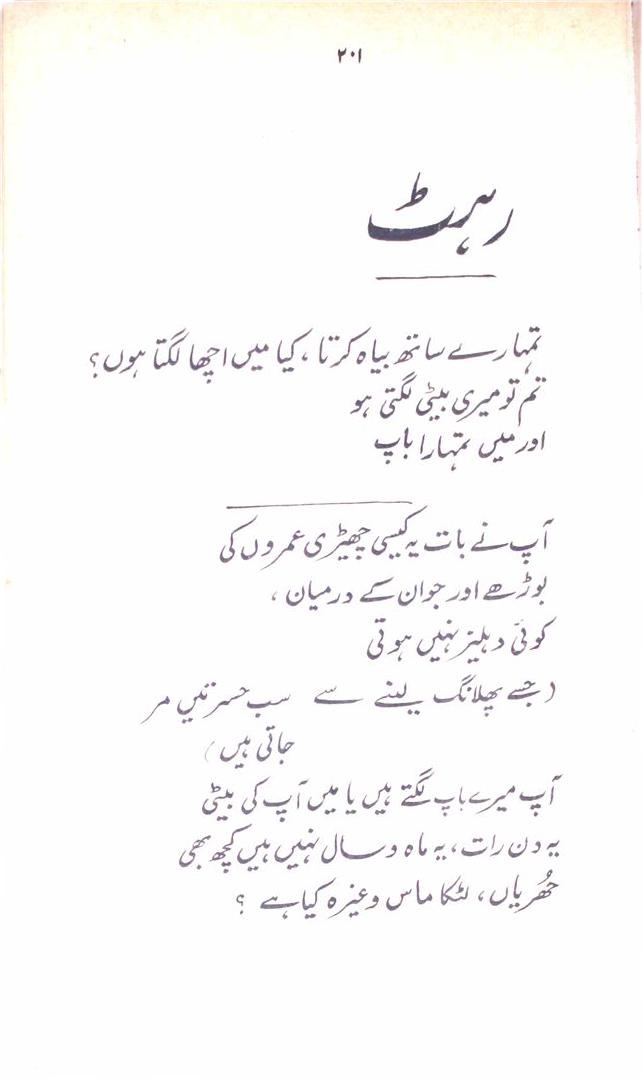 ۲۰۱
رہٹ
تمہارے ساتھ بیاہ کرتا، کیا میں اچھا لگتا ہوں؟
تم تو میری بیٹی لگتی ہو
اور میں تمہارا باپ
آپ نے بات یہ کیسی چھیڑی عمروں کی
بوڑھے اور جوان کے درمیان،
کوئی دہلیز نہیں ہوتی
(جسے پھلانگ لینے سے سب حسرتیں مر
جاتی ہیں)
آپ میرے باپ لگتے ہیں یا میں آپ کی بیٹی
یہ دن رات، یہ ماہ و سال نہیں ہیں کچھ بھی
جُھریاں، لٹکا ماس وغیرہ کیا ہے ؟